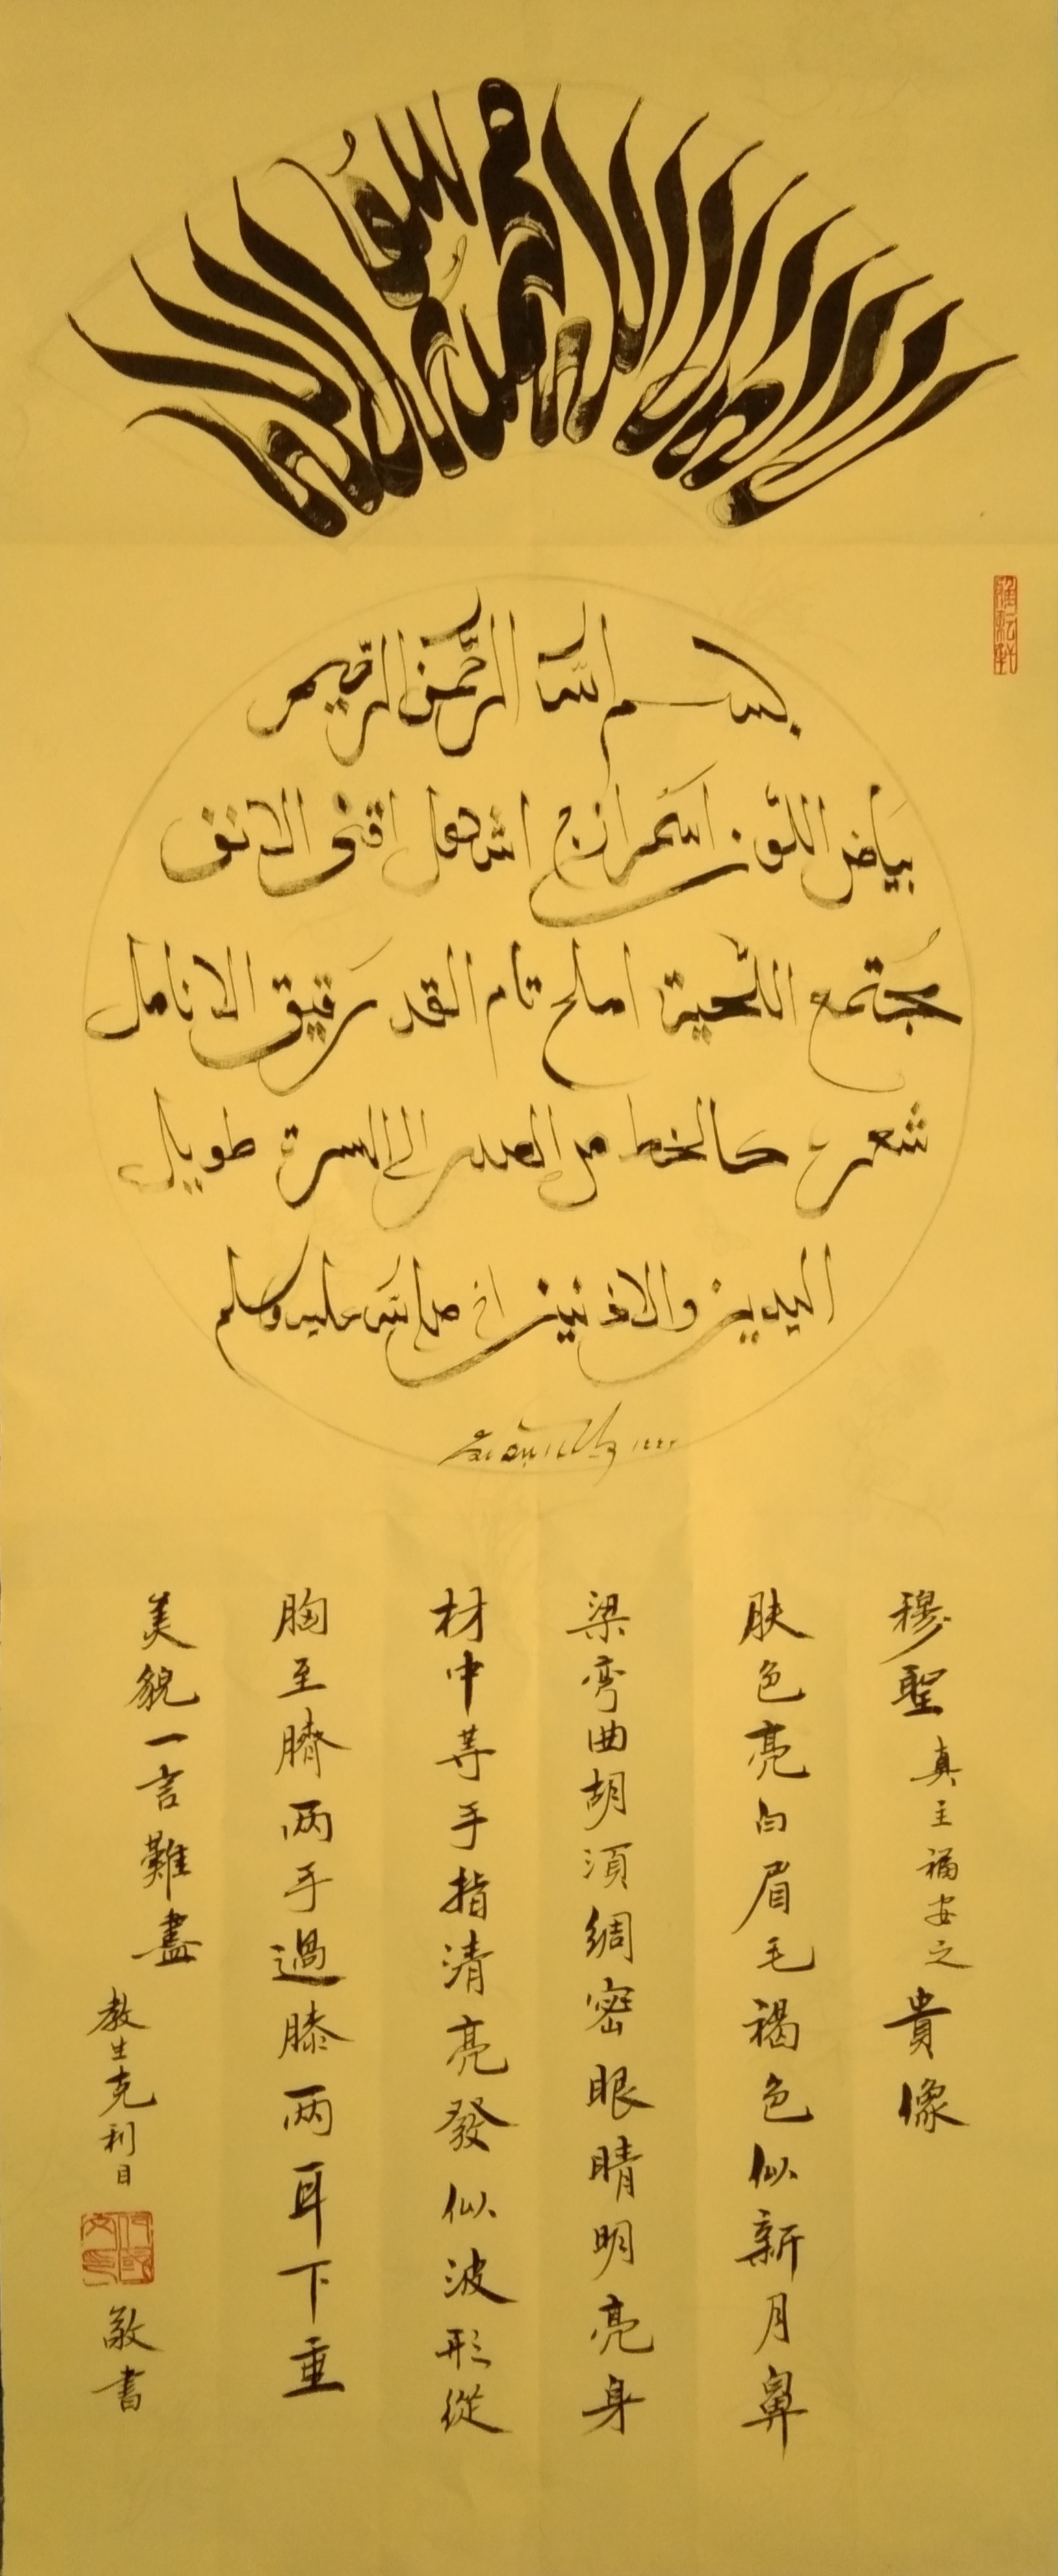 لا اله الا الله محمد رسول الله
بسم الله الرحمن الرحيم
بياض اللون اسمر ازج اشهل اقنى الانف
مجتمع اللحية املح تام القد رقيق الانامل
شعره كالخط من الصدر الى السرة طويل
اليدين والاذنين صلى الله عليه وسلم
穆聖真主福安之貴像
肤色亮白眉毛褐色似新月鼻
梁弯曲胡湏綢密眼睛明亮身
材中等手指清亮發似波形從
胸至臍两手過膝两耳下重
美貌一言難盡
教生克利目
敬書